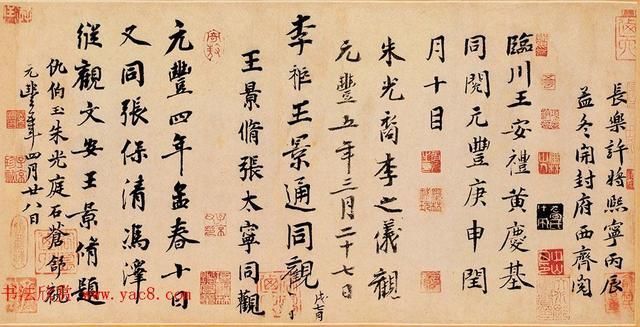 長樂許將熙寧丙辰
孟冬開封府西齋閱
臨川王安禮黃慶基
同閱元豐庚申閏
月十日
朱光裔李之儀觀
元豐五年三月二十七日
李秬王景通同觀
王景脩張太寧同觀
元豐四年孟春十日
又同張保清馮澤
縱觀文安王景脩題
仇伯玉朱光庭石蒼舒觀
元豐五年四月廿八日
书法欣赏 www.yac8.com